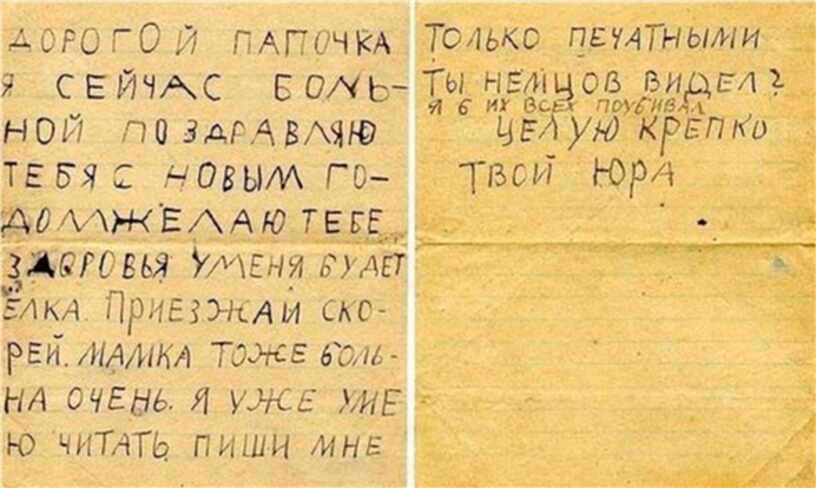 ДОРОГОЙ ПАПОЧКА
Я СЕЙЧАС БОЛЬ-
НОЙ ПОЗДРАВЛЯЮ
ТЕБЯ С НОВЫМ ГО-
ДОМ ЖЕЛАЮ ТЕБЕ
ЗДОРОВЬЯ У МЕНЯ БУДЕТ
ЁЛКА. ПРИЕЗЖАЙ СКО-
РЕЙ. МАМКА ТОЖЕ БОЛЬ-
НА ОЧЕНЬ. Я УЖЕ УМЕ
Ю ЧИТАТЬ ПИШИ МНЕ
ТОЛЬКО ПЕЧАТНЫМИ
ТЫ НЕМЦОВ ВИДЕЛ?
Я Б ИХ ВСЕХ ПОУБИВАЛ
ЦЕЛУЮ КРЕПКО
ТВОЙ ЮРА